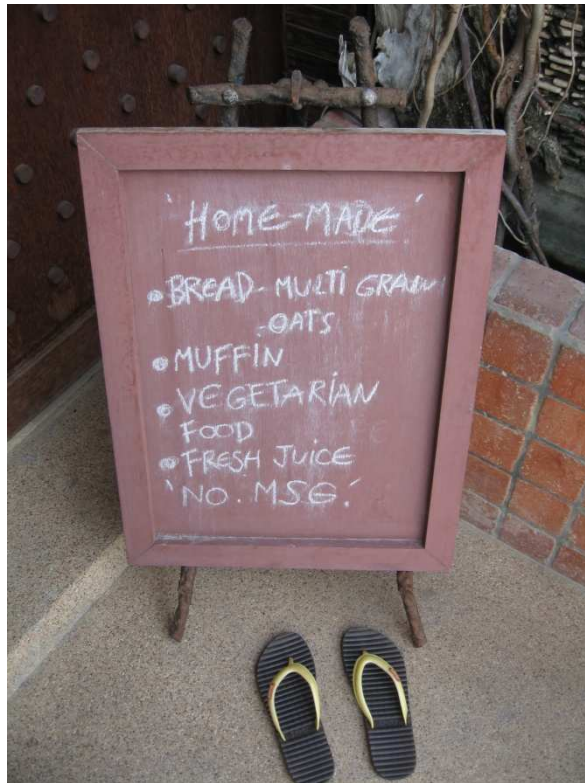 'HOME-MADE'
• BREAD - MULTI GRAIN
- OATS
• MUFFIN
• VEGETARIAN
FOOD
• FRESH JUICE
'NO. MSG.'